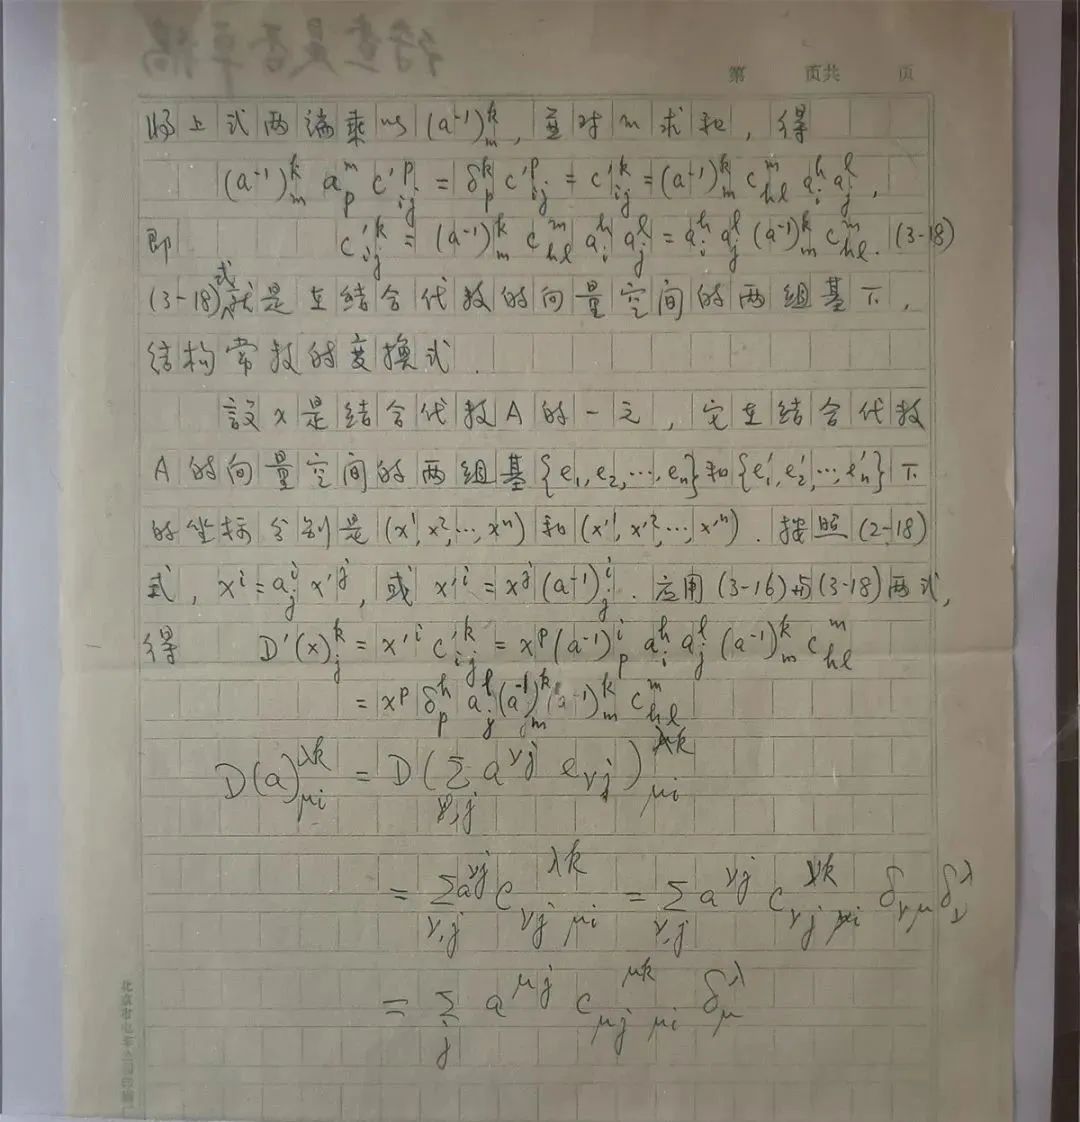 待查是否草稿
第 页共 页
将上式两端乘以 (a⁻¹)ᵏₘ, 並对 m 求和, 得
(a⁻¹)ᵏₘ aᵐₚ c'ᵖᵢⱼ = δᵏₚ c'ᵖᵢⱼ = c'ᵏᵢⱼ = (a⁻¹)ᵏₘ cᵐₕₗ aʰᵢ aˡⱼ,
即 c'ᵏᵢⱼ = (a⁻¹)ᵏₘ cᵐₕₗ aʰᵢ aˡⱼ = aʰᵢ aˡⱼ (a⁻¹)ᵏₘ cᵐₕₗ. (3-18)
(3-18)式就是在结合代数的向量空间的两组基下,
结构常数的变换式.
設 x 是结合代数 A 的一元, 它在结合代数
A 的向量空间的两组基 {e₁, e₂, ⋯, eₙ} 和 {e'₁, e'₂, ⋯, e'ₙ} 下
的坐标分别是 (x¹, x², ⋯, xⁿ) 和 (x'¹, x'², ⋯, x'ⁿ). 按照 (2-18)
式, xⁱ = aⁱⱼ x'ʲ, 或 x'ⁱ = xʲ (a⁻¹)ⁱⱼ. 应用 (3-16) 与 (3-18) 两式,
得 D'(x)ᵏⱼ = x'ⁱ c'ᵏᵢⱼ = xᵖ (a⁻¹)ⁱₚ aʰᵢ aˡⱼ (a⁻¹)ᵏₘ cᵐₕₗ
= xᵖ δʰₚ aˡⱼ (a⁻¹)ᵏₘ (a⁻¹)ᵏₘ cᵐₕₗ
D(a)^{λk}_{μi} = D(∑_{ν,j} a^{νj} e_{νj})^{λk}_{μi}
= ∑_{ν,j} a^{νj} c^{λk}_{νj μi} = ∑_{ν,j} a^{νj} c^{νk}_{νj μi} δ_{νμ} δ^λ_ν
= ∑_j a^{μj} c^{μk}_{μj μi} δ^λ_μ